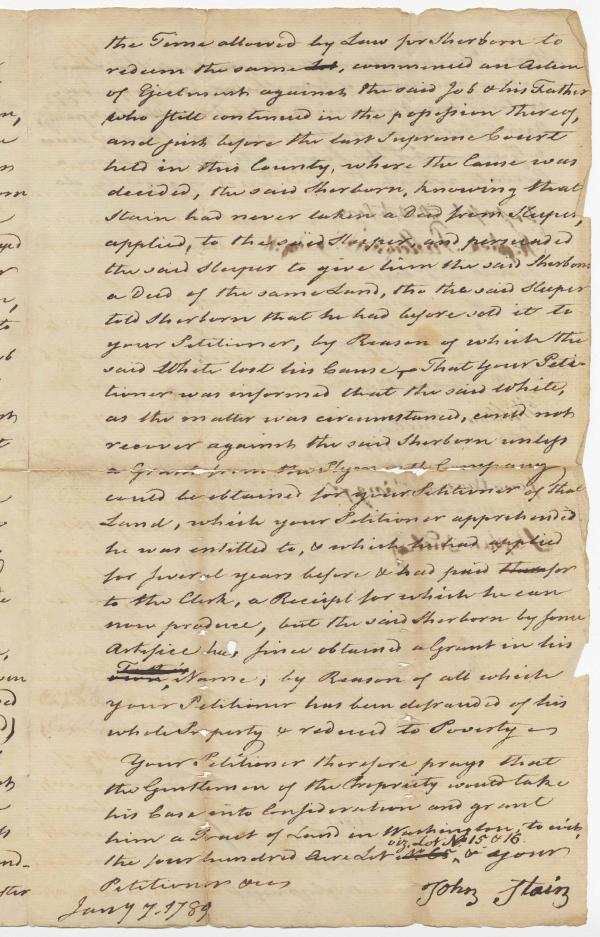 the Time allowed by Law for Sherborn to
redeem the same, commenced an Action
of Ejectment against the said Job & his Father
who still continued in the possession thereof,
and just before the last Supreme Court
held in this County, where the Cause was
decided, the said Sherborn, knowing that
Stain had never taken a Deed from Sleeper,
applied, to the said Sleeper and persuaded
the said Sleeper to give him the said Sherborn
a Deed of the same Land, tho the said Sleeper
told Sherborn that he had before sold it to
your Petitioner, by Reason of which the
said White lost his Cause, That your Peti-
tioner was informed that the said White,
as the matter was circumstanced, could not
recover against the said Sherborn unless
a Grant from the Plymouth Company
could be obtained for your Petitioner of that
Land, which your Petitioner apprehended
he was entitled to, & which he had applied
for several years before & had paid for
to the Clerk, a Receipt for which he can
now produce, but the said Sherborn by some
Artifice has since obtained a Grant in his
own Name; by Reason of all which
your Petitioner has been defrauded of his
whole Property & reduced to Poverty
Your Petitioner therefore prays that
the Gentlemen of the Propriety would take
his Case into Consideration and grant
him a Tract of Land in Washington, to wit,
viz. Lot No 15 & 16
the four hundred Acre Lot No 65, & your
Petitioner &c
John Stain
Jany 7. 1789